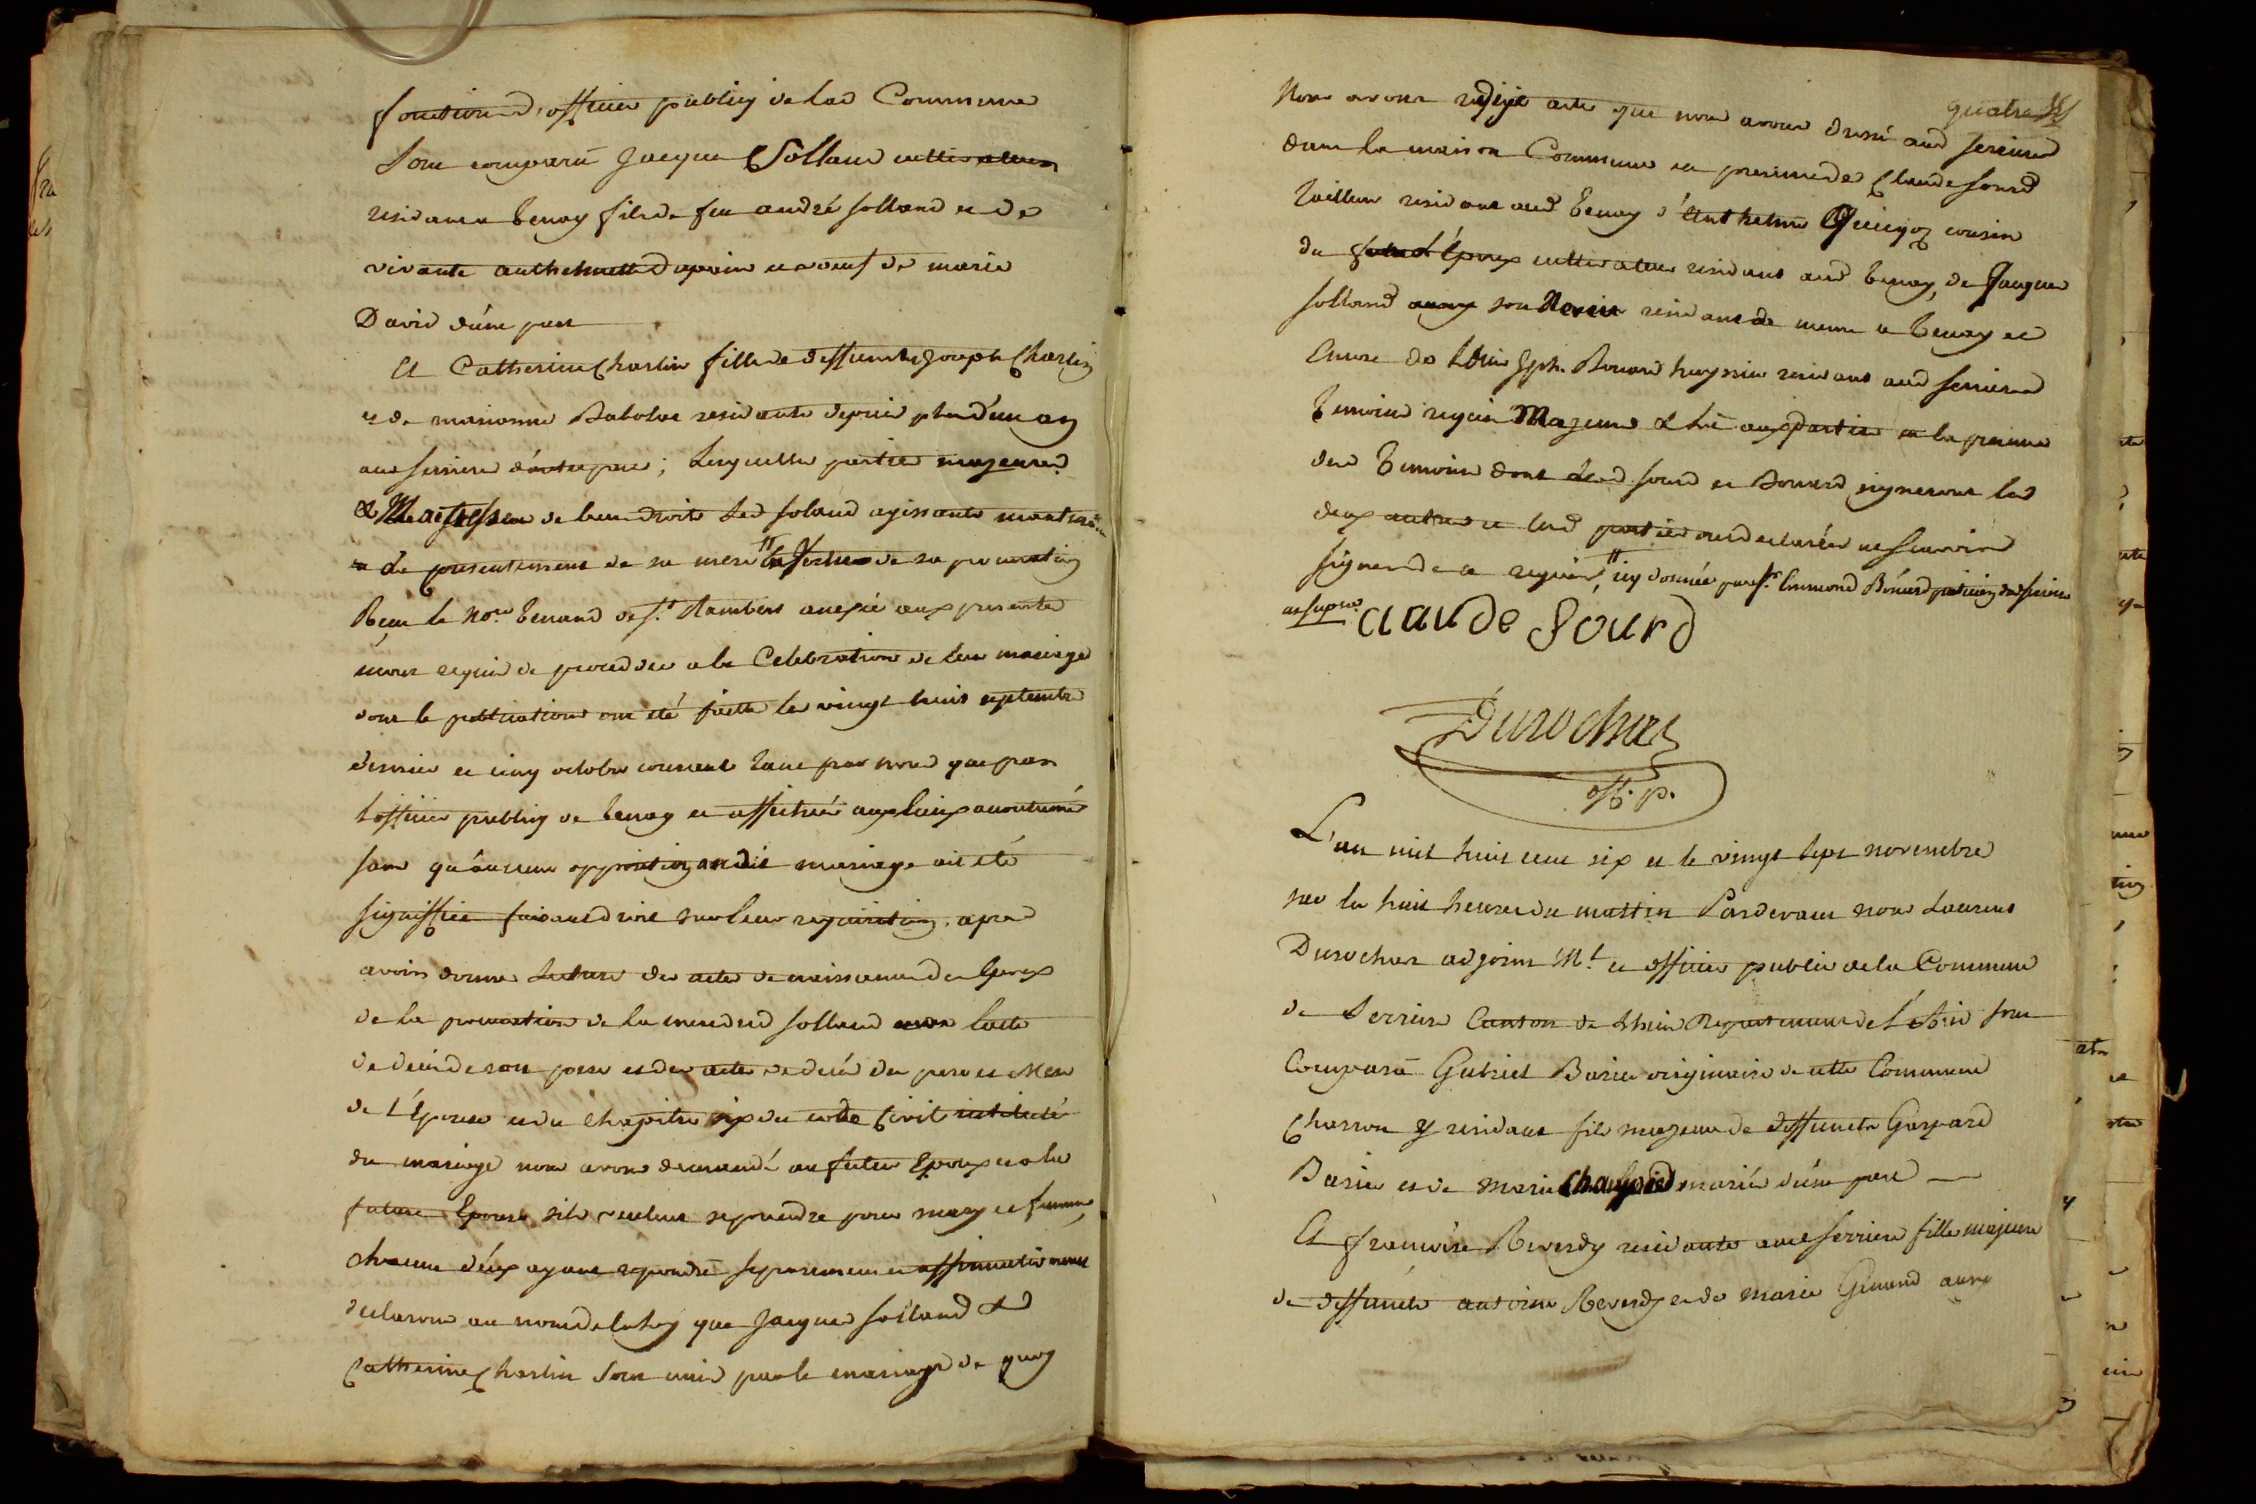 fonctions d'officier publiq de lad Commune
Sont comparu Jacque Solland cultivateur
residant a Tenay fils de feu andré solland et de
vivante anthelmette dapvin et veuf de marie
David d'une part
Et Catherine Charlin fille de deffunts Joseph Charlin
et de marianne residante depuis plus d'un an
aud serriere d'autre part ; Lesquelles parties majeures
& Maitresses de leurs droits Led soland agissants
& du consentement de sa mere en vertus de sa procuration
Reçue le No.re Tenand de s.t Rambert anexée aux presentes
nous requis de proceder a la Celebration de leur mariage
dont les publications ont été faittes les vingt huit septembre
dernier et cinq octobre courrant tant par nous que par
l'officier publiq de Tenay et affichée aux lieux accoutumés
sans qu'aucune opposition audit mariage ait été
signiffiée faisant droit sur leur requisition, apres
avoir donné lecture des actes de naissance des Epoux
de la procuration de la mere dud solland de lacte
de decés de son pere et des actes de decés des pere et Mere
de l'Epouse et du chapitre six du code Civil intitulé
du mariage nous avons demandé au futur Epoux et a la
future Epouse sils veulent se prendre pour mary et femme,
chacun d'eux ayant repondu separement et affirmativement
declarons au nom de la loy que Jacque solland &
Catherine Charlin sont unis par le mariage de quoy
quatre
Nous avons redigé acte que nous avons dressé aud serriere
dans la maison Commune en presence de Claude sourd
tailleur residant aud Tenay d'Anthelme Quinçoz cousin
du futur Epoux cultivateur residant aud Tenay, de Jacque
solland son Neveu residant de meme a Tenay et
Encore de Louis Jph. Bonard huyssier residant aud serriere
Temoins requis Majeurs & Lû aux parties en la presence
des Temoins dont Led sourd et Bonard signeront les
deux autres et lesd parties ont declarées ne sçavoir
signer de ce requis, icy donnée par s.r Emmond Bonard praticien dud serriere
claude Sourd
Durochat
off. p.
L'an mil huit cent six et le vingt sept novembre
sur les huit heures du mattin Pardevant nous Laurent
Durochat adjoint M.l et officier publiq de la Commune
de Serriere Canton de Lhuis Departement de l'Ain sont
Comparu Gabriel Barie originaire de cette Commune
Charron y residant fils majeur de deffuncts Gaspard
Barie et de Marie mariés d'une part
Et françoise Reverdy residante aud serriere fille majeure
de deffuncts antoine Reverdy et de Marie Gunand